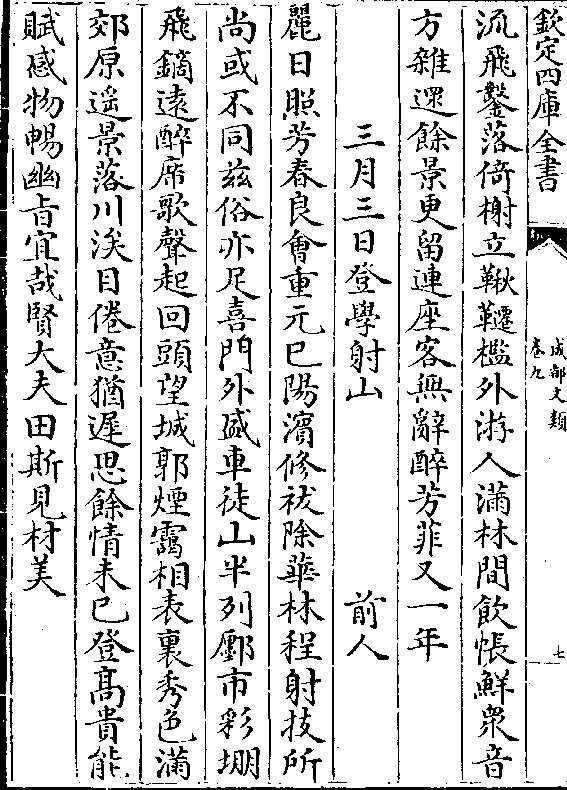 欽定四庫全書
成都文類
卷九
七
流飛鑿落倚榭立鞦韆檻外游人滿林間飲帳鮮衆音
方雜遝餘景更留連座客無辭醉芳菲又一年
三月三日登學射山 前人
麗日照芳春良會重元巳陽濱修祓除華林程射技所
尚或不同兹俗亦足喜門外盛車徒山半列鄽市彩堋
飛鏑遠醉席歌聲起回頭望城郭煙靄相表裏秀色滿
郊原遥景落川涘目倦意猶遲思餘情未已登髙貴能
賦感物暢幽㫖宜哉賢大夫由斯見材美